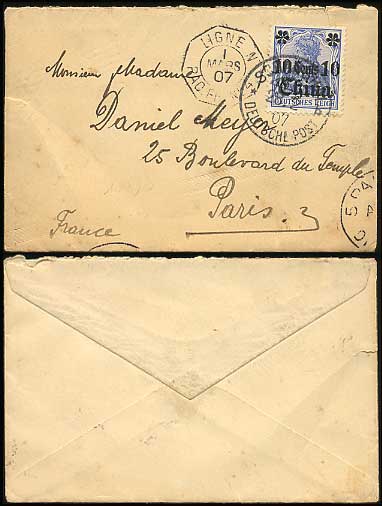 LIGNE N
1
MARS
07
10 Cents 10
China
DEUTSCHES REICH
07
DEUTSCHE POST
Monsieur Madame
Daniel Meyer
25 Boulevard du Temple
Paris. 3
France
5